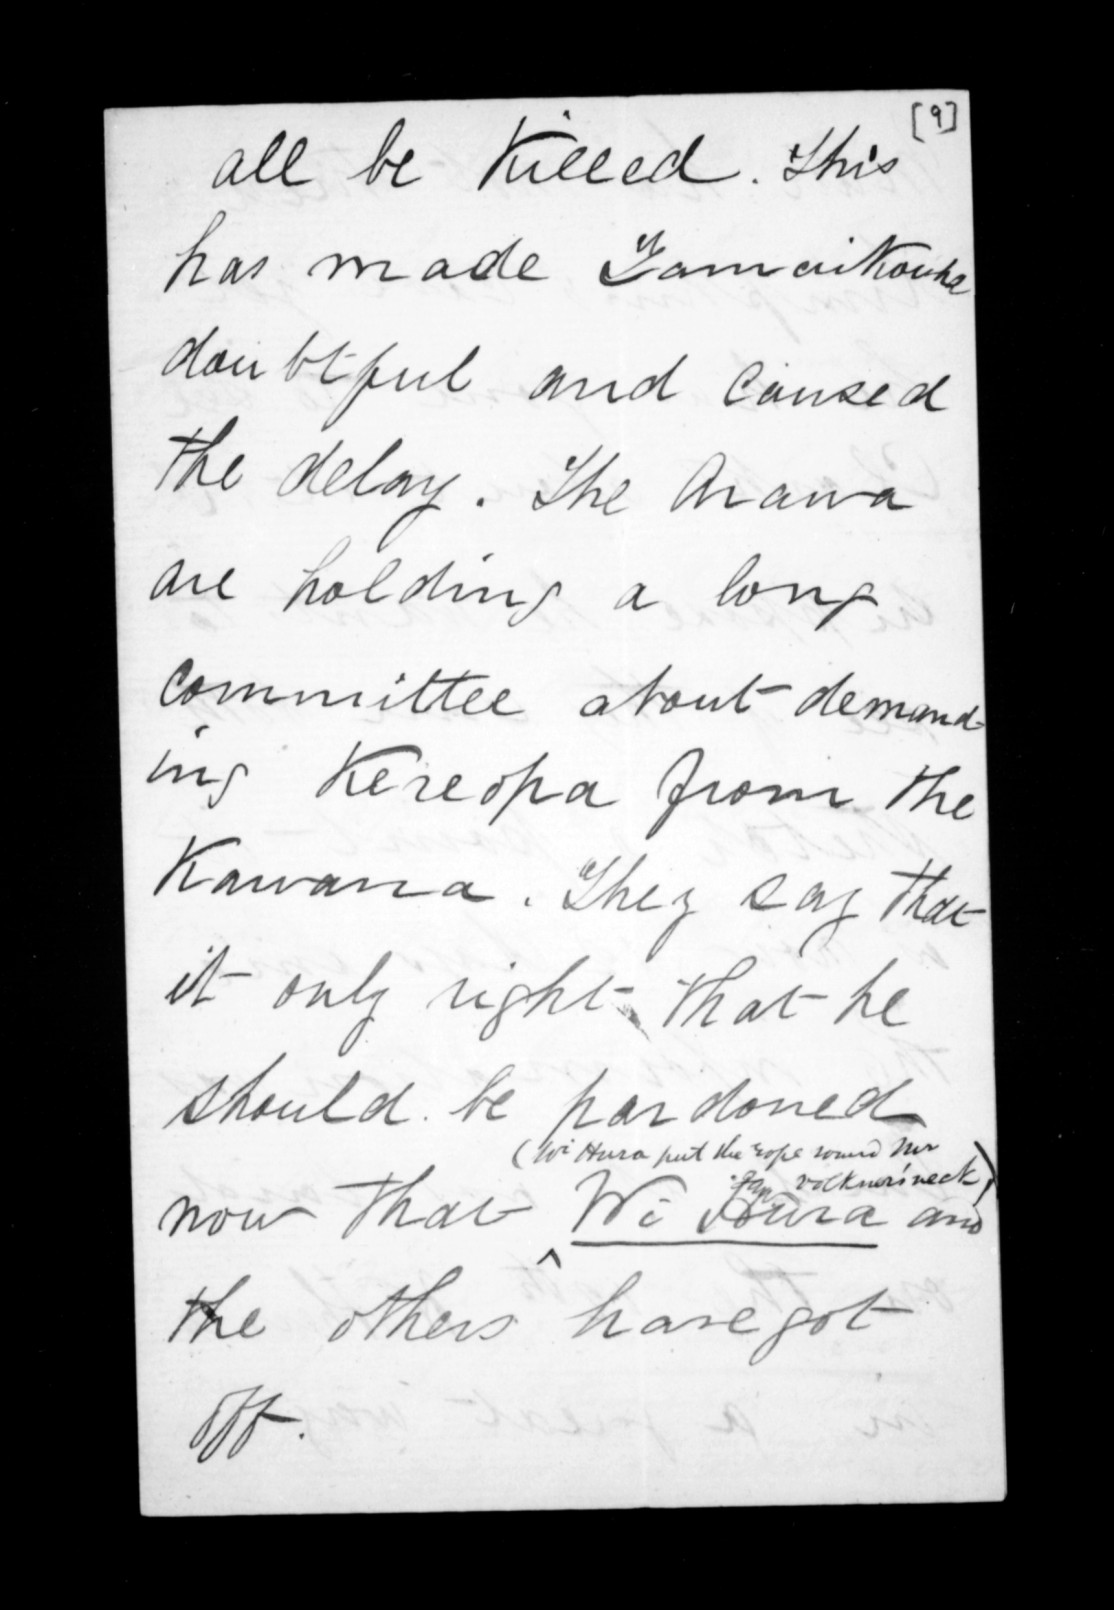 [9]
all be Killed. This
has made Tamaikowha
doubtful and caused
the delay. The Arawa
are holding a long
committee about demand-
ing Kereopa from the
Kawana. They say that
it only right that he
should be pardoned
(Wi Hura put the rope round Mr
Volkner's neck)
now that Wi Hura and
the others have got
off.